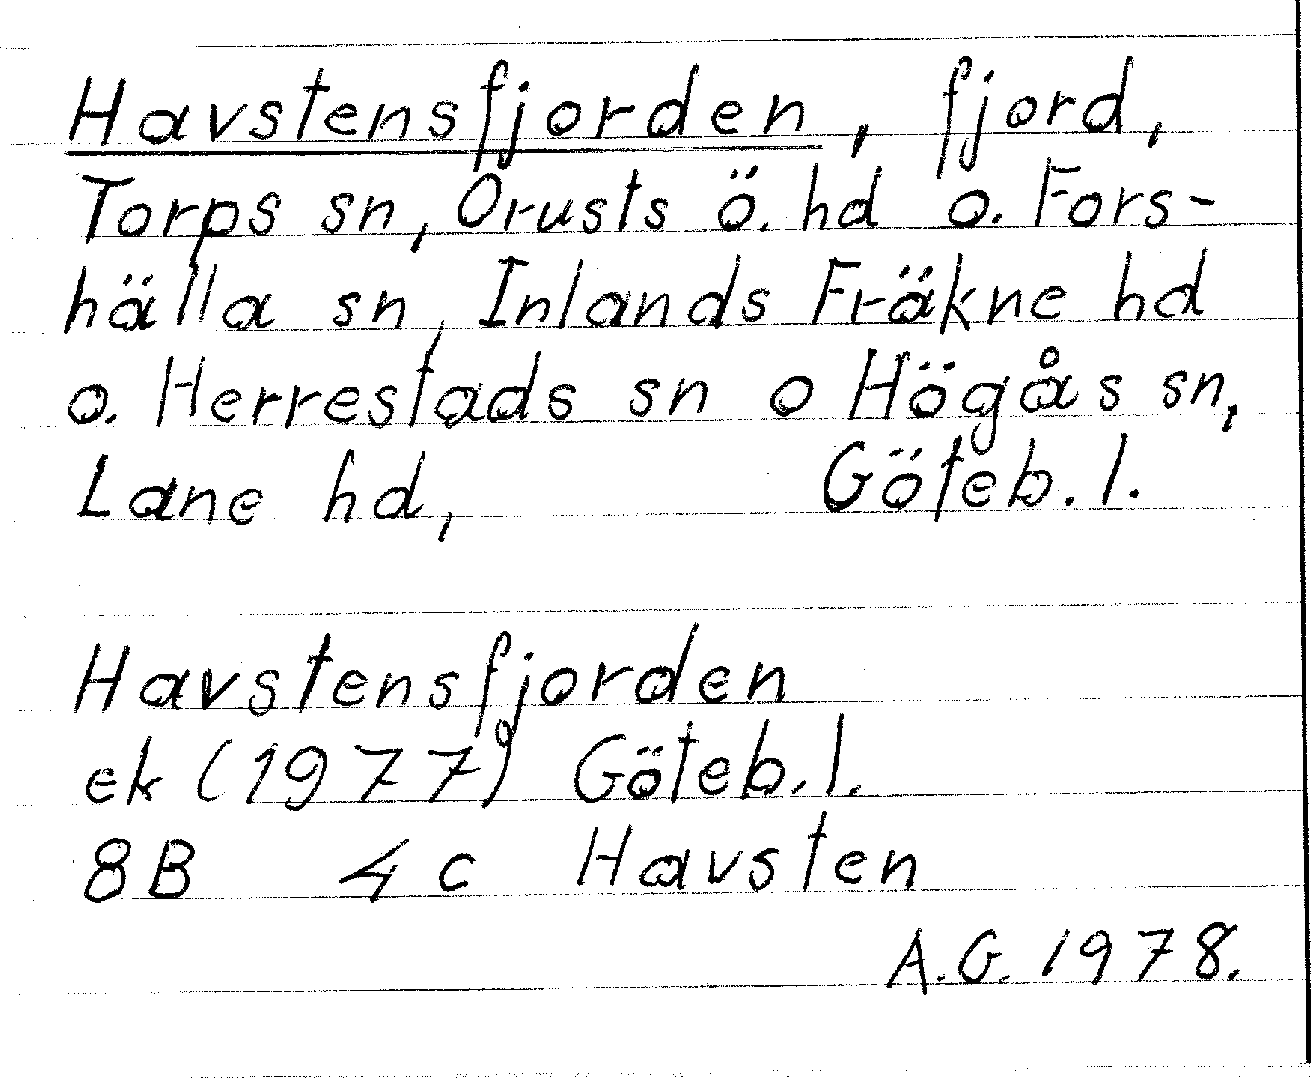 Havstensfjorden, fjord,
Torps sn, Orusts ö. hd o. Fors-
hälla sn, Inlands Fräkne hd
o. Herrestads sn o Högås sn,
Lane hd, Göteb. l.
Havstensfjorden
ek (1977) Göteb. l.
8B 4c Havsten
A.G. 1978.